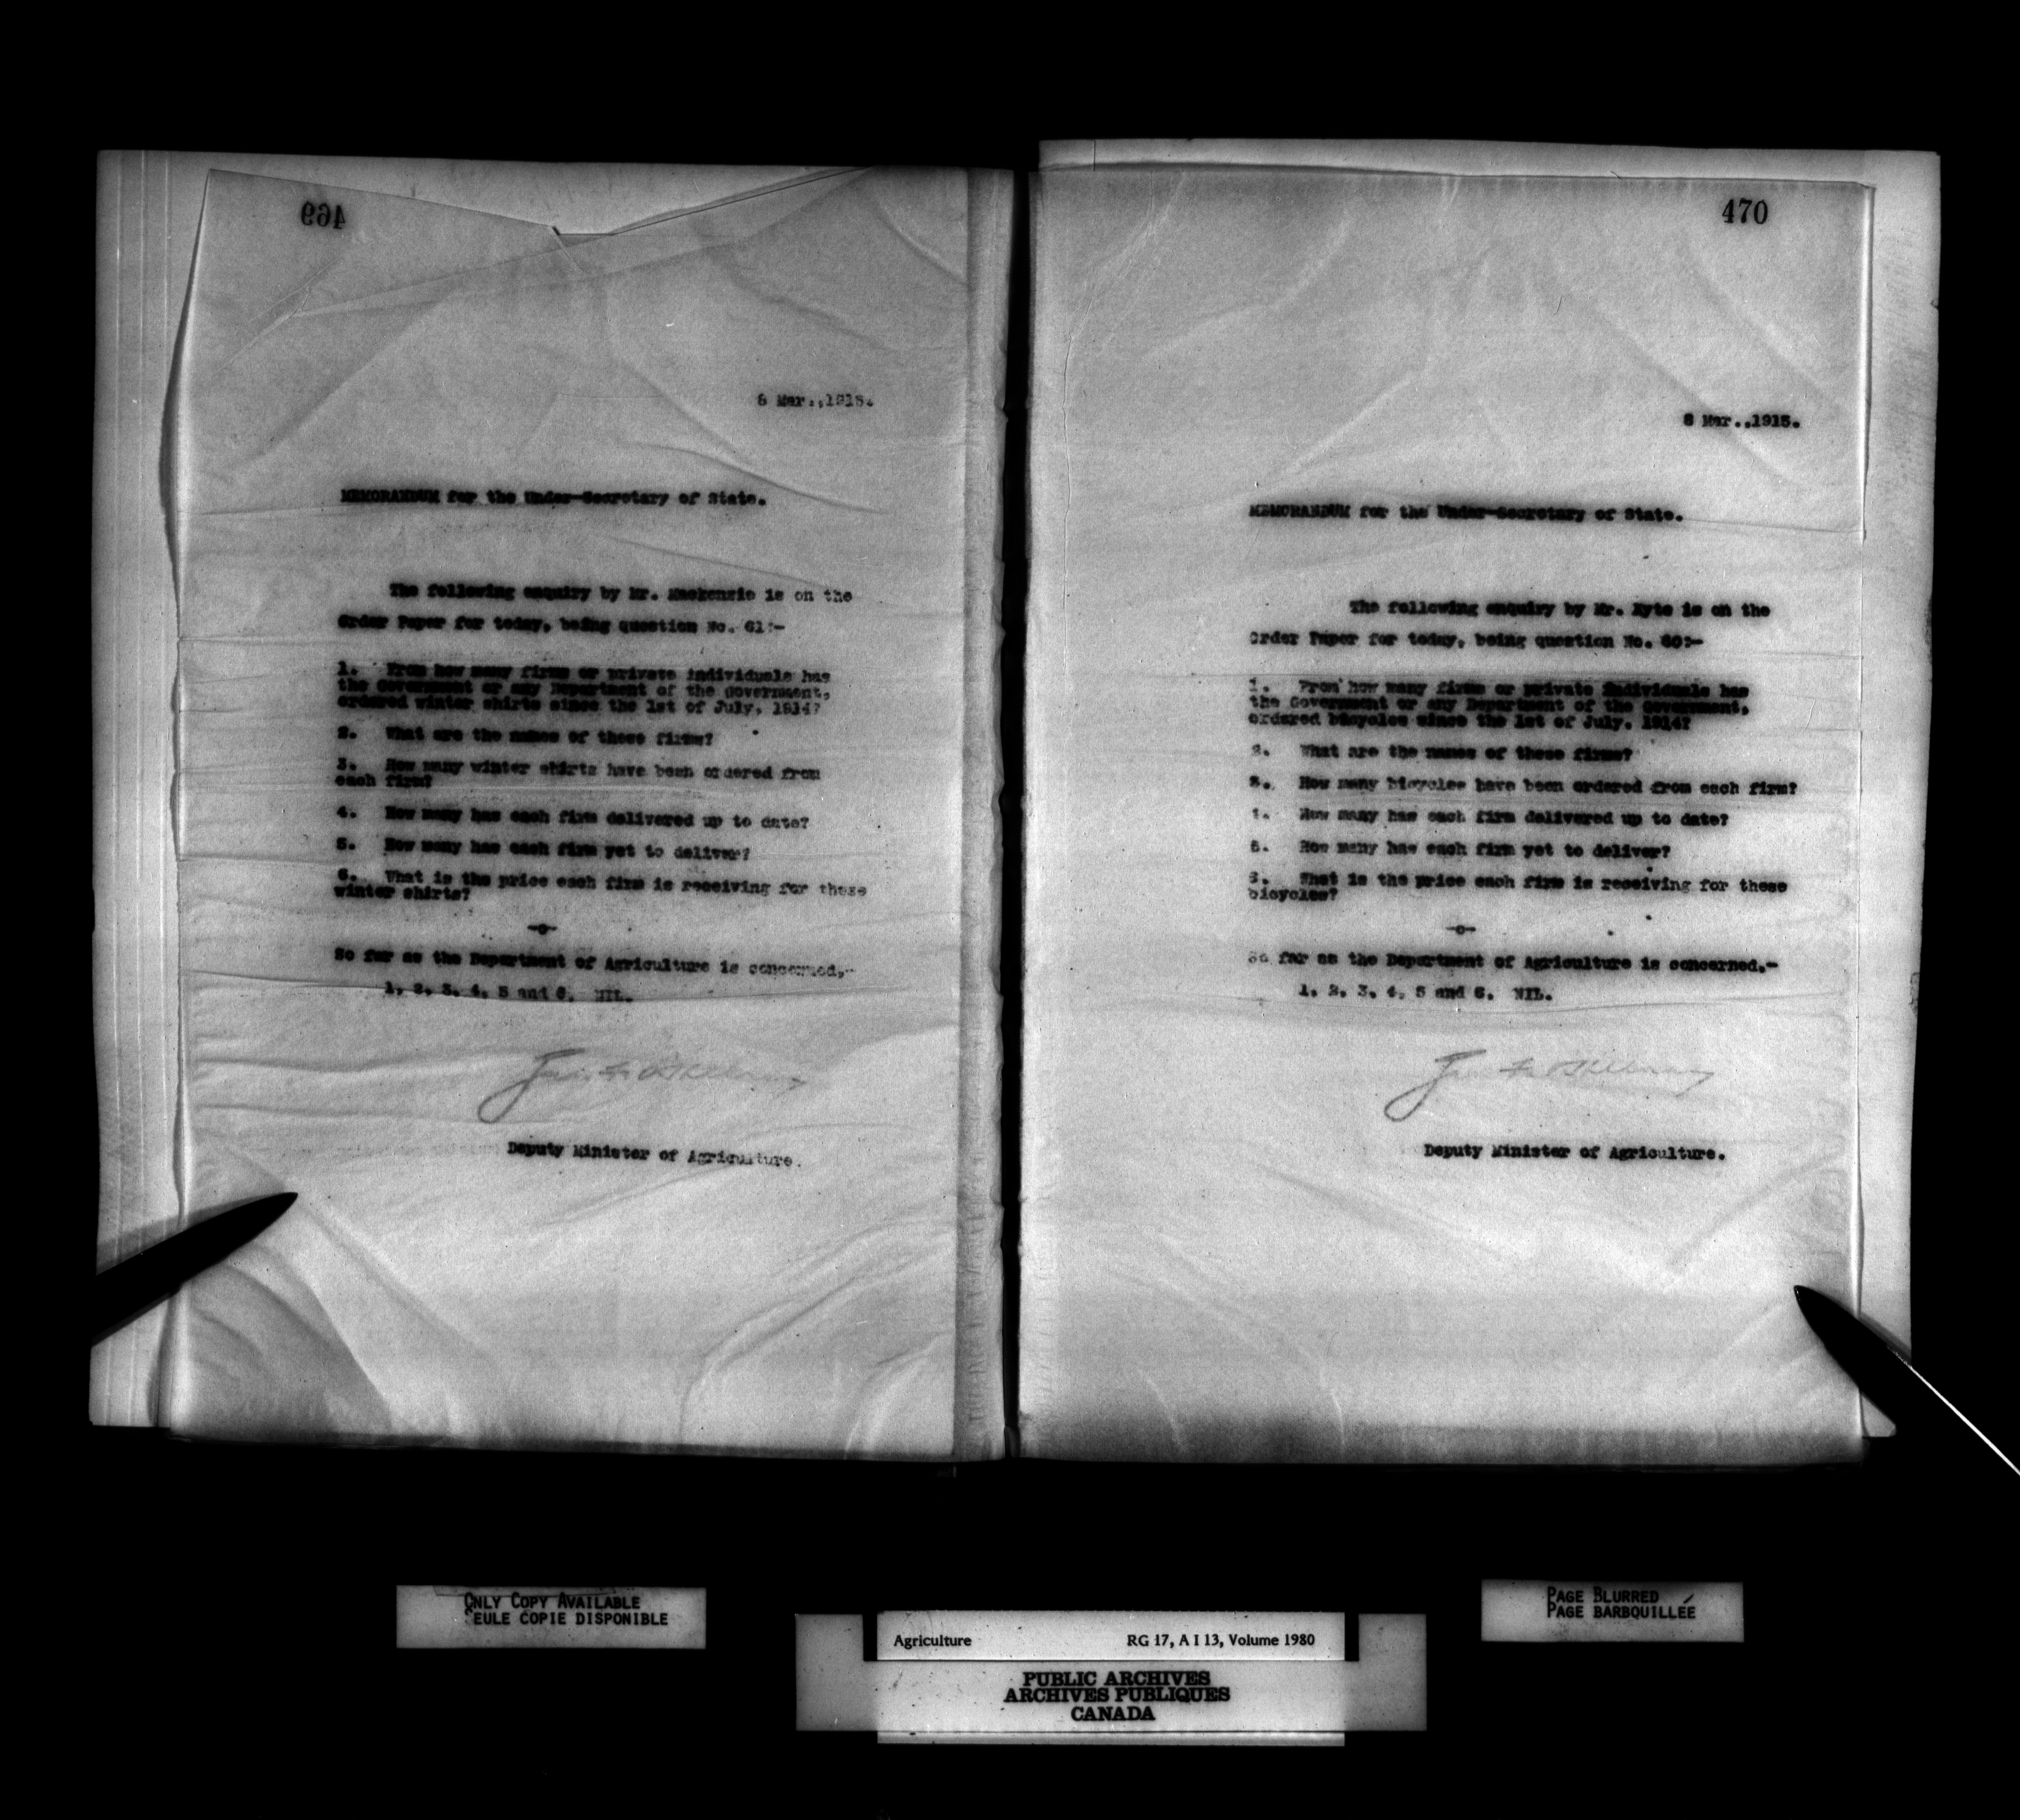 469
8 Mar.,1915.
MEMORANDUM for the Under-Secretary of State.
The following enquiry by Mr. Mackenzie is on the
Order Paper for today, being question No. 61:-
1. From how many firms or private individuals has
the Government or any Department of the Government,
ordered winter shirts since the 1st of July, 1914?
2. What are the names of these firms?
3. How many winter shirts have been ordered from
each firm?
4. How many has each firm delivered up to date?
5. How many has each firm yet to deliver?
6. What is the price each firm is receiving for these
winter shirts?
-o-
So far as the Department of Agriculture is concerned,-
1, 2, 3, 4, 5 and 6. NIL.
Deputy Minister of Agriculture.
470
8 Mar.,1915.
MEMORANDUM for the Under-Secretary of State.
The following enquiry by Mr. Kyte is on the
Order Paper for today, being question No. 60:-
1. From how many firms or private individuals has
the Government or any Department of the Government,
ordered bicycles since the 1st of July, 1914?
2. What are the names of these firms?
3. How many bicycles have been ordered from each firm?
4. How many has each firm delivered up to date?
5. How many has each firm yet to deliver?
6. What is the price each firm is receiving for these
bicycles?
-o-
So far as the Department of Agriculture is concerned,-
1, 2, 3, 4, 5 and 6. NIL.
Deputy Minister of Agriculture.
ONLY COPY AVAILABLE
SEULE COPIE DISPONIBLE
PAGE BLURRED
PAGE BARBOUILLÉE
Agriculture RG 17, A I 13, Volume 1980
PUBLIC ARCHIVES
ARCHIVES PUBLIQUES
CANADA